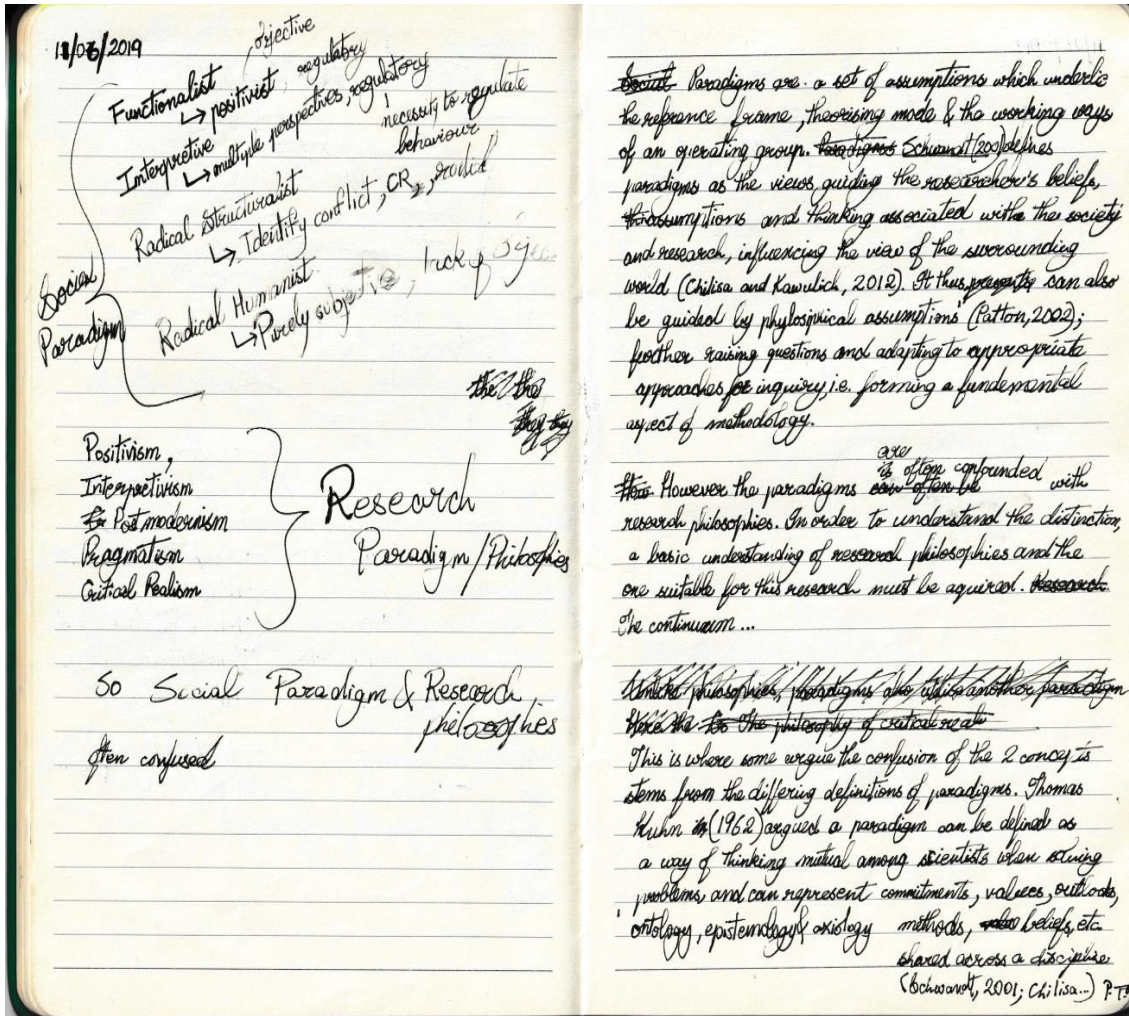 11/03/2019
objective
Functionalist
↳ positivist, regulatory
Interpretive
↳ multiple perspectives, regulatory
necessity to regulate
behaviour
Radical Structuralist
↳ Identify conflict, CR,
Radical Humanist
↳ Purely subjective, lack of
Social
Paradigm
Positivism,
Interpretivism
Postmodernism
Pragmatism
Critical Realism
Research
Paradigm/Philosophies
So Social Paradigm & Research
philosophies
often confused
Social Paradigms are a set of assumptions which underlie
the reference frame, theorising mode & the working ways
of an operating group. Paradigms Schwandt (2001) defines
paradigms as the views guiding the researcher's beliefs,
assumptions and thinking associated with the society
and research, influencing the view of the surrounding
world (Chilisa and Kawulich, 2012). It thus presents can also
be guided by phylosiphical assumptions (Patton, 2002);
further raising questions and adapting to appropriate
approaches for inquiry, i.e. forming a fundemental
aspect of methodology.
are
is often confounded
How However the paradigms can often be with
research philosophies. In order to understand the distinction,
a basic understanding of research philosophies and the
one suitable for this research must be aquired. Research
The continuum...
Unlike philosophies, paradigms also utilise another paradigm
Here the The philosophy of critical reali
This is where some argue the confusion of the 2 concepts
stems from the differing definitions of paradigms. Thomas
Kuhn in (1962) argued a paradigm can be defined as
a way of thinking mutual among scientists when solving
problems, and can represent commitments, values, outlooks,
ontology, epistemology & axiology methods, also beliefs, etc.
shared across a discipline
(Schwandt, 2001; Chilisa...) P.T.